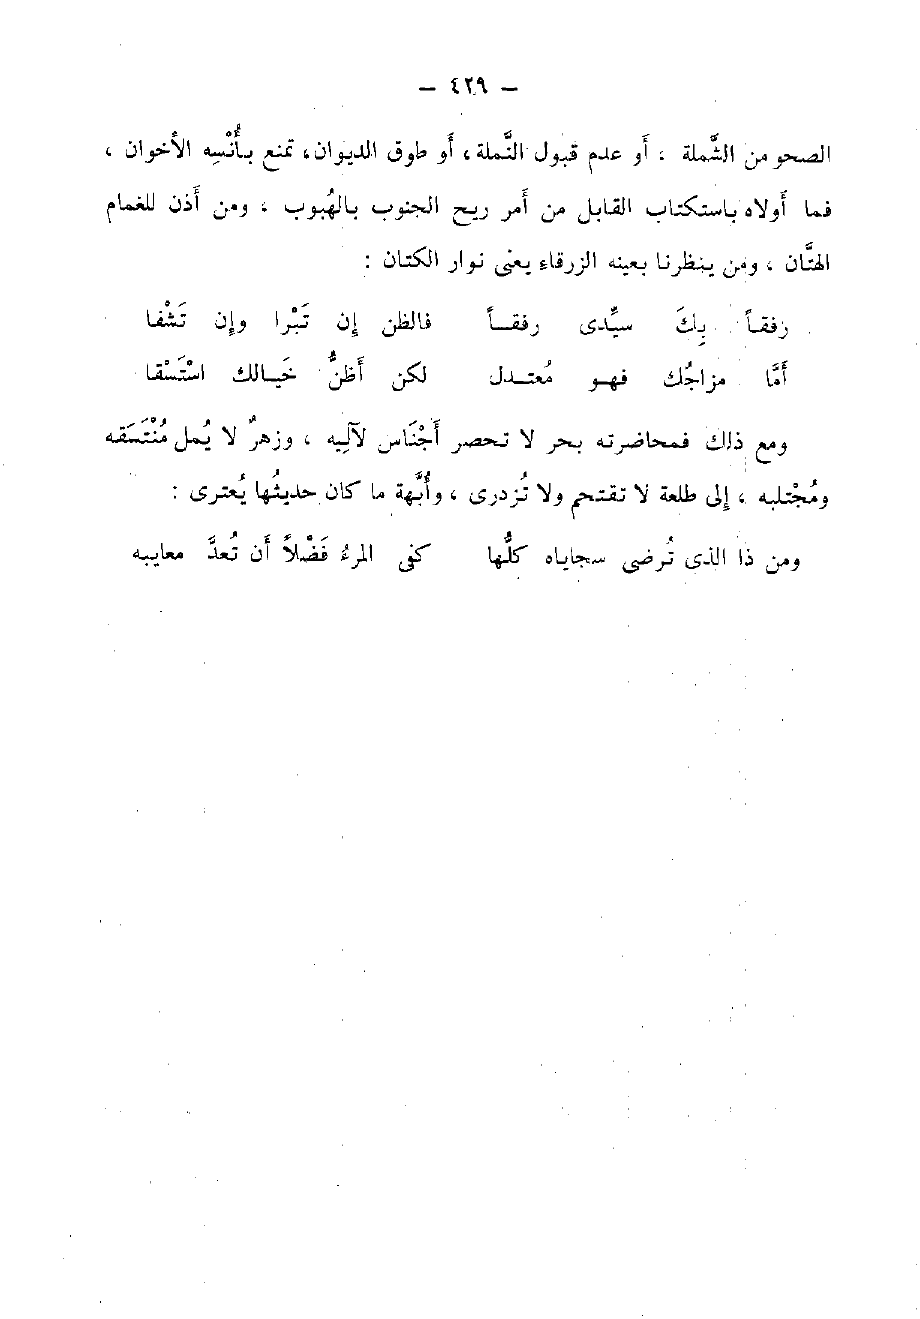 — ٤٢٩ —
الصحو من الشَّملة ، أو علم قبول النَّملة ، أو طوق الديوان، تمنع بأُنْسِه الأخوان ،
فما أولاه باستكتاب القابل من أمر ريح الجنوب بالهُبوب ، ومن أذن للغمام
الهتَّان ، ومن ينظرنا بعينه الزرقاء يعنى نوار الكتان :
رفقـاً بِكَ سيِّدى رفقـاً فالظن إن تَبْرا وإن تَشْفا
أمَّا مزاجُك فهـو مُعتـدل لكن أظنُّ خَيـالك اسْتَسْقا
ومع ذلك فمحاضرته بحر لا تحصر أجْنَاس لآلِيه ، وزهرٌ لا يُمل مُنْتَسَقه
ومُجْتلبه ، إلى طلعة لا تقتحم ولا تُزدرى ، وأُبَّهة ما كان حديثُها يُعترى :
ومن ذا الذى تُرضى سجاياه كلُّها كفى المرءُ فَضْلاً أن تُعدَّ معايبه